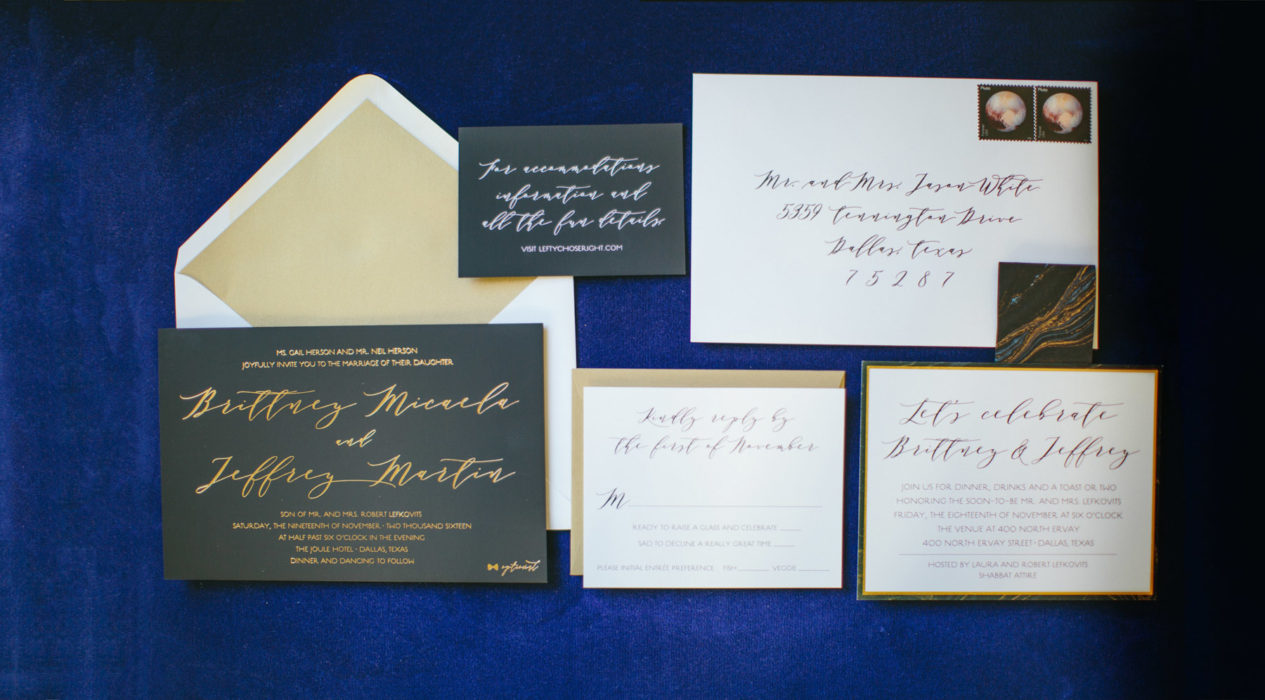 For accommodations
information and
all the fun details,
VISIT LEFTYCHOSERIGHT.COM
Pluto
Pluto
Mr. and Mrs. Jason White
5359 Tennington Drive
Dallas, Texas
75287
MS. GAIL HERSON AND MR. NEIL HERSON
JOYFULLY INVITE YOU TO THE MARRIAGE OF THEIR DAUGHTER
Brittney Micaela
and
Jeffrey Martin
SON OF MR. AND MRS. ROBERT LEFKOVITS
SATURDAY, THE NINETEENTH OF NOVEMBER · TWO THOUSAND SIXTEEN
AT HALF PAST SIX O'CLOCK IN THE EVENING
THE JOULE HOTEL · DALLAS, TEXAS
DINNER AND DANCING TO FOLLOW
optional
Kindly reply by
the first of November
M
READY TO RAISE A GLASS AND CELEBRATE
SAD TO DECLINE A REALLY GREAT TIME
PLEASE INITIAL ENTRÉE PREFERENCE FISH VEGGIE
Let's celebrate
Brittney & Jeffrey
JOIN US FOR DINNER, DRINKS AND A TOAST OR TWO
HONORING THE SOON-TO-BE MR. AND MRS. LEFKOVITS
FRIDAY, THE EIGHTEENTH OF NOVEMBER AT SIX O'CLOCK
THE VENUE AT 400 NORTH ERVAY
400 NORTH ERVAY STREET · DALLAS, TEXAS
HOSTED BY LAURA AND ROBERT LEFKOVITS
SHABBAT ATTIRE